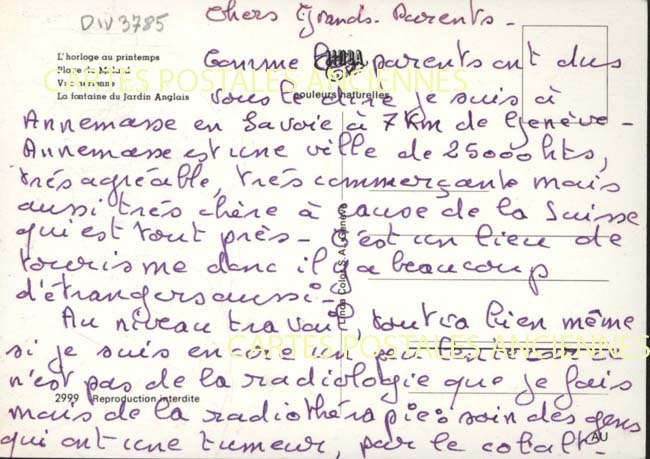 DIV 3785
Chers Grands-Parents -
L'horloge au printemps
Plage de
Vue aérienne
La fontaine du Jardin Anglais
couleurs naturelles
CARTES POSTALES ANCIENNES
Comme les parents ont dus
vous le dire je suis à
Annemasse en Savoie à 7 Km de Genève -
Annemasse est une ville de 25000 hts,
très agréable, très commerçante mais
aussi très chère à cause de la Suisse
qui est tout près - C'est un lieu de
tourisme donc il y a beaucoup
d'étrangers aussi -
Au niveau travail, tout va bien même
si je suis encore un peu
CARTES POSTALES ANCIENNES
n'est pas de la radiologie que je fais
mais de la radiothérapie : soin des gens
qui ont une tumeur, par le cobalt -
2999 Reproduction interdite
Linda Color S.A. Genève
AU